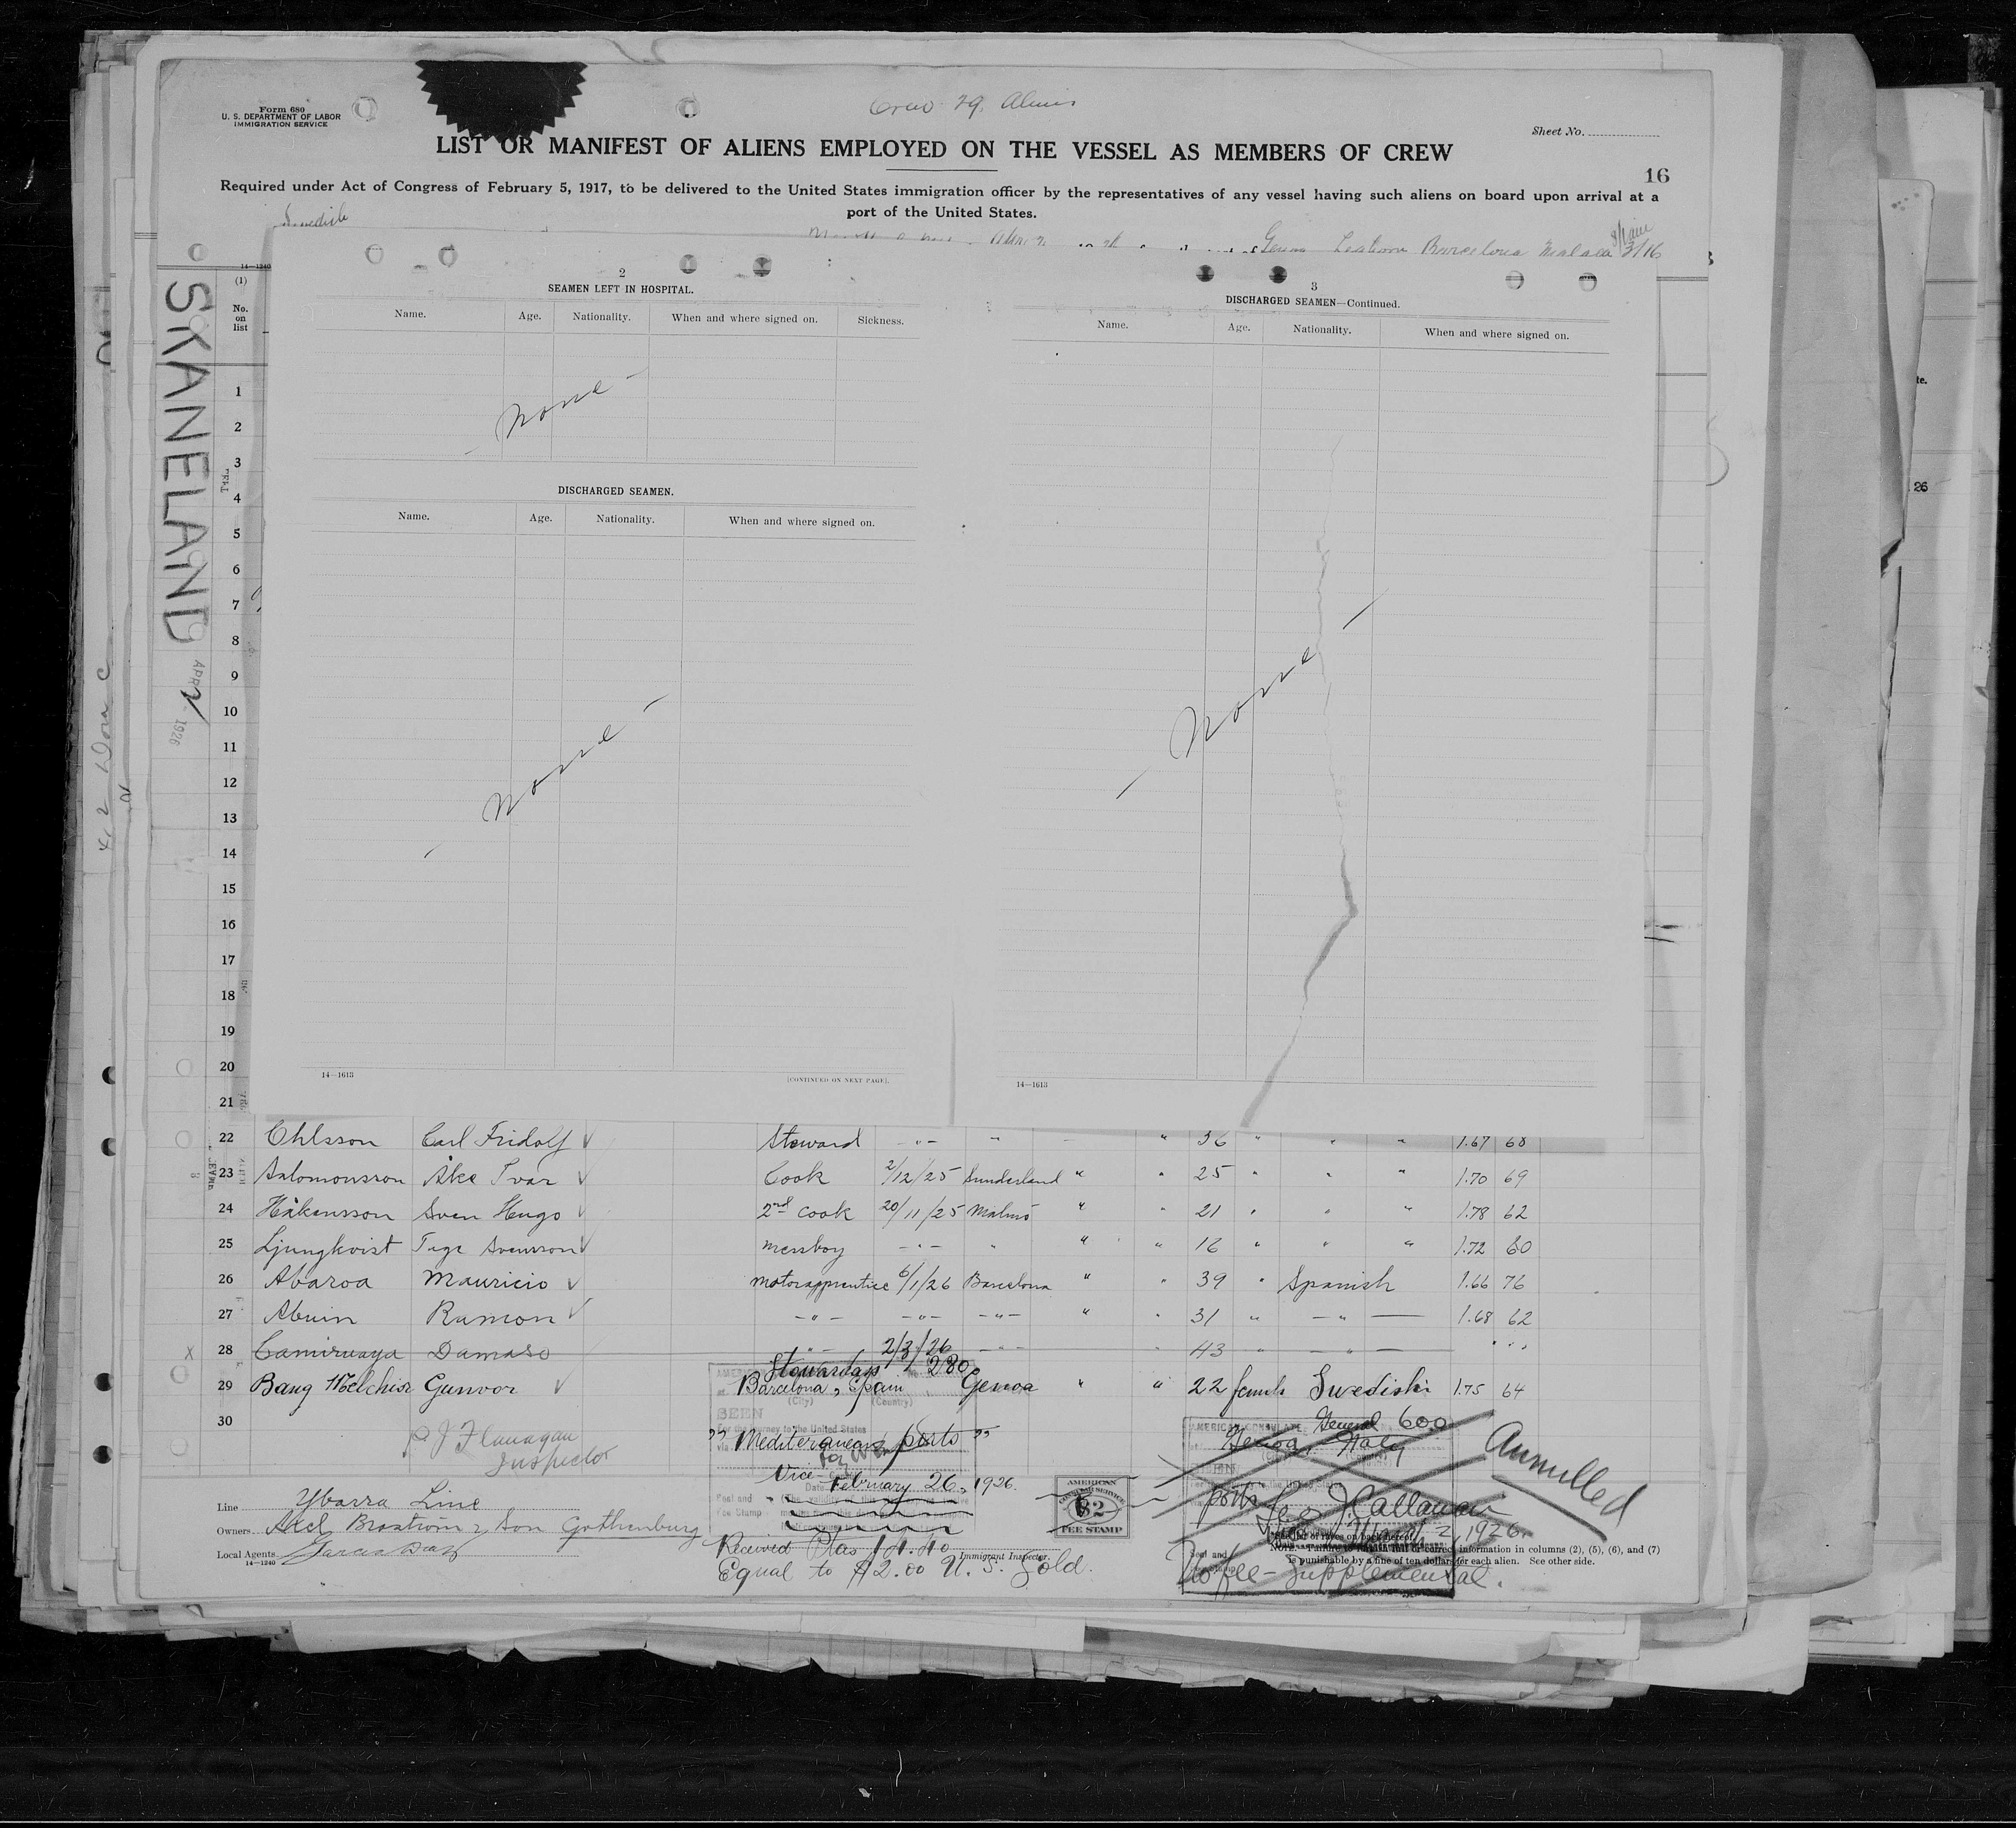 Form 680
U. S. DEPARTMENT OF LABOR
IMMIGRATION SERVICE
Crew 29
Sheet No.
LIST OR MANIFEST OF ALIENS EMPLOYED ON THE VESSEL AS MEMBERS OF CREW
16
Required under Act of Congress of February 5, 1917, to be delivered to the United States immigration officer by the representatives of any vessel having such aliens on board upon arrival at a
port of the United States.
Swedish
Genoa Leghorn Barcelona Malaga 3/16
14—1240
(1)
No.
on
list
SKANELAND
APR 2 1926
2
SEAMEN LEFT IN HOSPITAL.
Name. Age. Nationality. When and where signed on. Sickness.
- None -
DISCHARGED SEAMEN.
Name. Age. Nationality. When and where signed on.
- None -
14—1613
[CONTINUED ON NEXT PAGE].
3
DISCHARGED SEAMEN—Continued.
Name. Age. Nationality. When and where signed on.
- None -
14—1613
1
2
3
4
5
6
7
8
9
10
11
12
13
14
15
16
17
18
19
20
21
22 Ohlsson Carl Fridolf Steward -"- " - " 36 " " " 1.67 68
23 Salomonsson Åke Ivar Cook 2/12/25 Sunderland " " 25 " " " 1.70 69
24 Håkansson Sven Hugo 2nd cook 20/11/25 Malmö " " 21 " " " 1.78 62
25 Ljungkvist Tage Svensson messboy -"- " " " 16 " " " 1.72 60
26 Abaroa Mauricio motorapprentice 6/1/26 Barcelona " " 39 " Spanish 1.66 76
27 Abuin Ramon -"- -"- -"- " " 31 " -"- 1.68 62
28 Damaso -"- 2/3/26 -"- " 43 " -"-
29 Bang Melchior Gunvor Stewardess Genoa " " 22 female Swedish 1.75 64
30
280
Barcelona, Spain
(City) (Country)
SEEN
For the journey to the United States
via
"Mediteranean ports"
Vice
February 26, 1926.
Seal and
Fee Stamp
P J Flanagan
Inspector
AMERICAN
CONSULAR SERVICE
$2
FEE STAMP
Received Ptas 14.40
Equal to $2.00 U. S. Gold.
AMERICAN CONSULATE General 600
Genoa, Italy
ports
Leo J. Callanan
2, 1926.
No fee - Supplemental.
Annulled
Line Ybarra Line
Owners Axel Broström & Son Gothenburg
Local Agents Garcia Diaz
14—1240
Immigrant Inspector.
*See list of races on back hereof.
NOTE.—Failure to furnish full or correct information in columns (2), (5), (6), and (7)
is punishable by a fine of ten dollars for each alien. See other side.
26